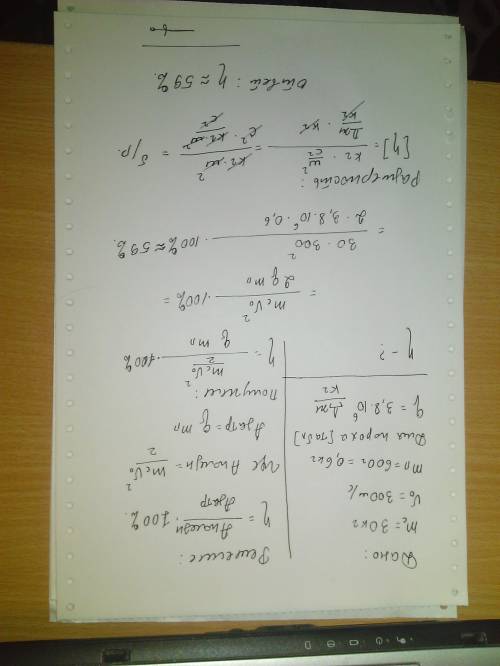 Дано:
m_c = 30 кг
v_0 = 300 м/с
m_п = 600 г = 0,6 кг
Для пороха [табл]
q = 3,8·10^6 Дж/кг
η - ?
Решение:
η = A_полезн / A_затр · 100%
где A_полезн = m_c v_0^2 / 2
A_затр = q m_п
Получили:
η = (m_c v_0^2 / 2) / (q m_п) · 100%
= m_c v_0^2 / (2 q m_п) · 100% =
= 30 · 300^2 / (2 · 3,8·10^6 · 0,6) · 100% ≈ 59%.
Размерность:
[η] = (кг · м^2/с^2) / (Дж/кг · кг) = = б/р.
Ответ: η ≈ 59%.